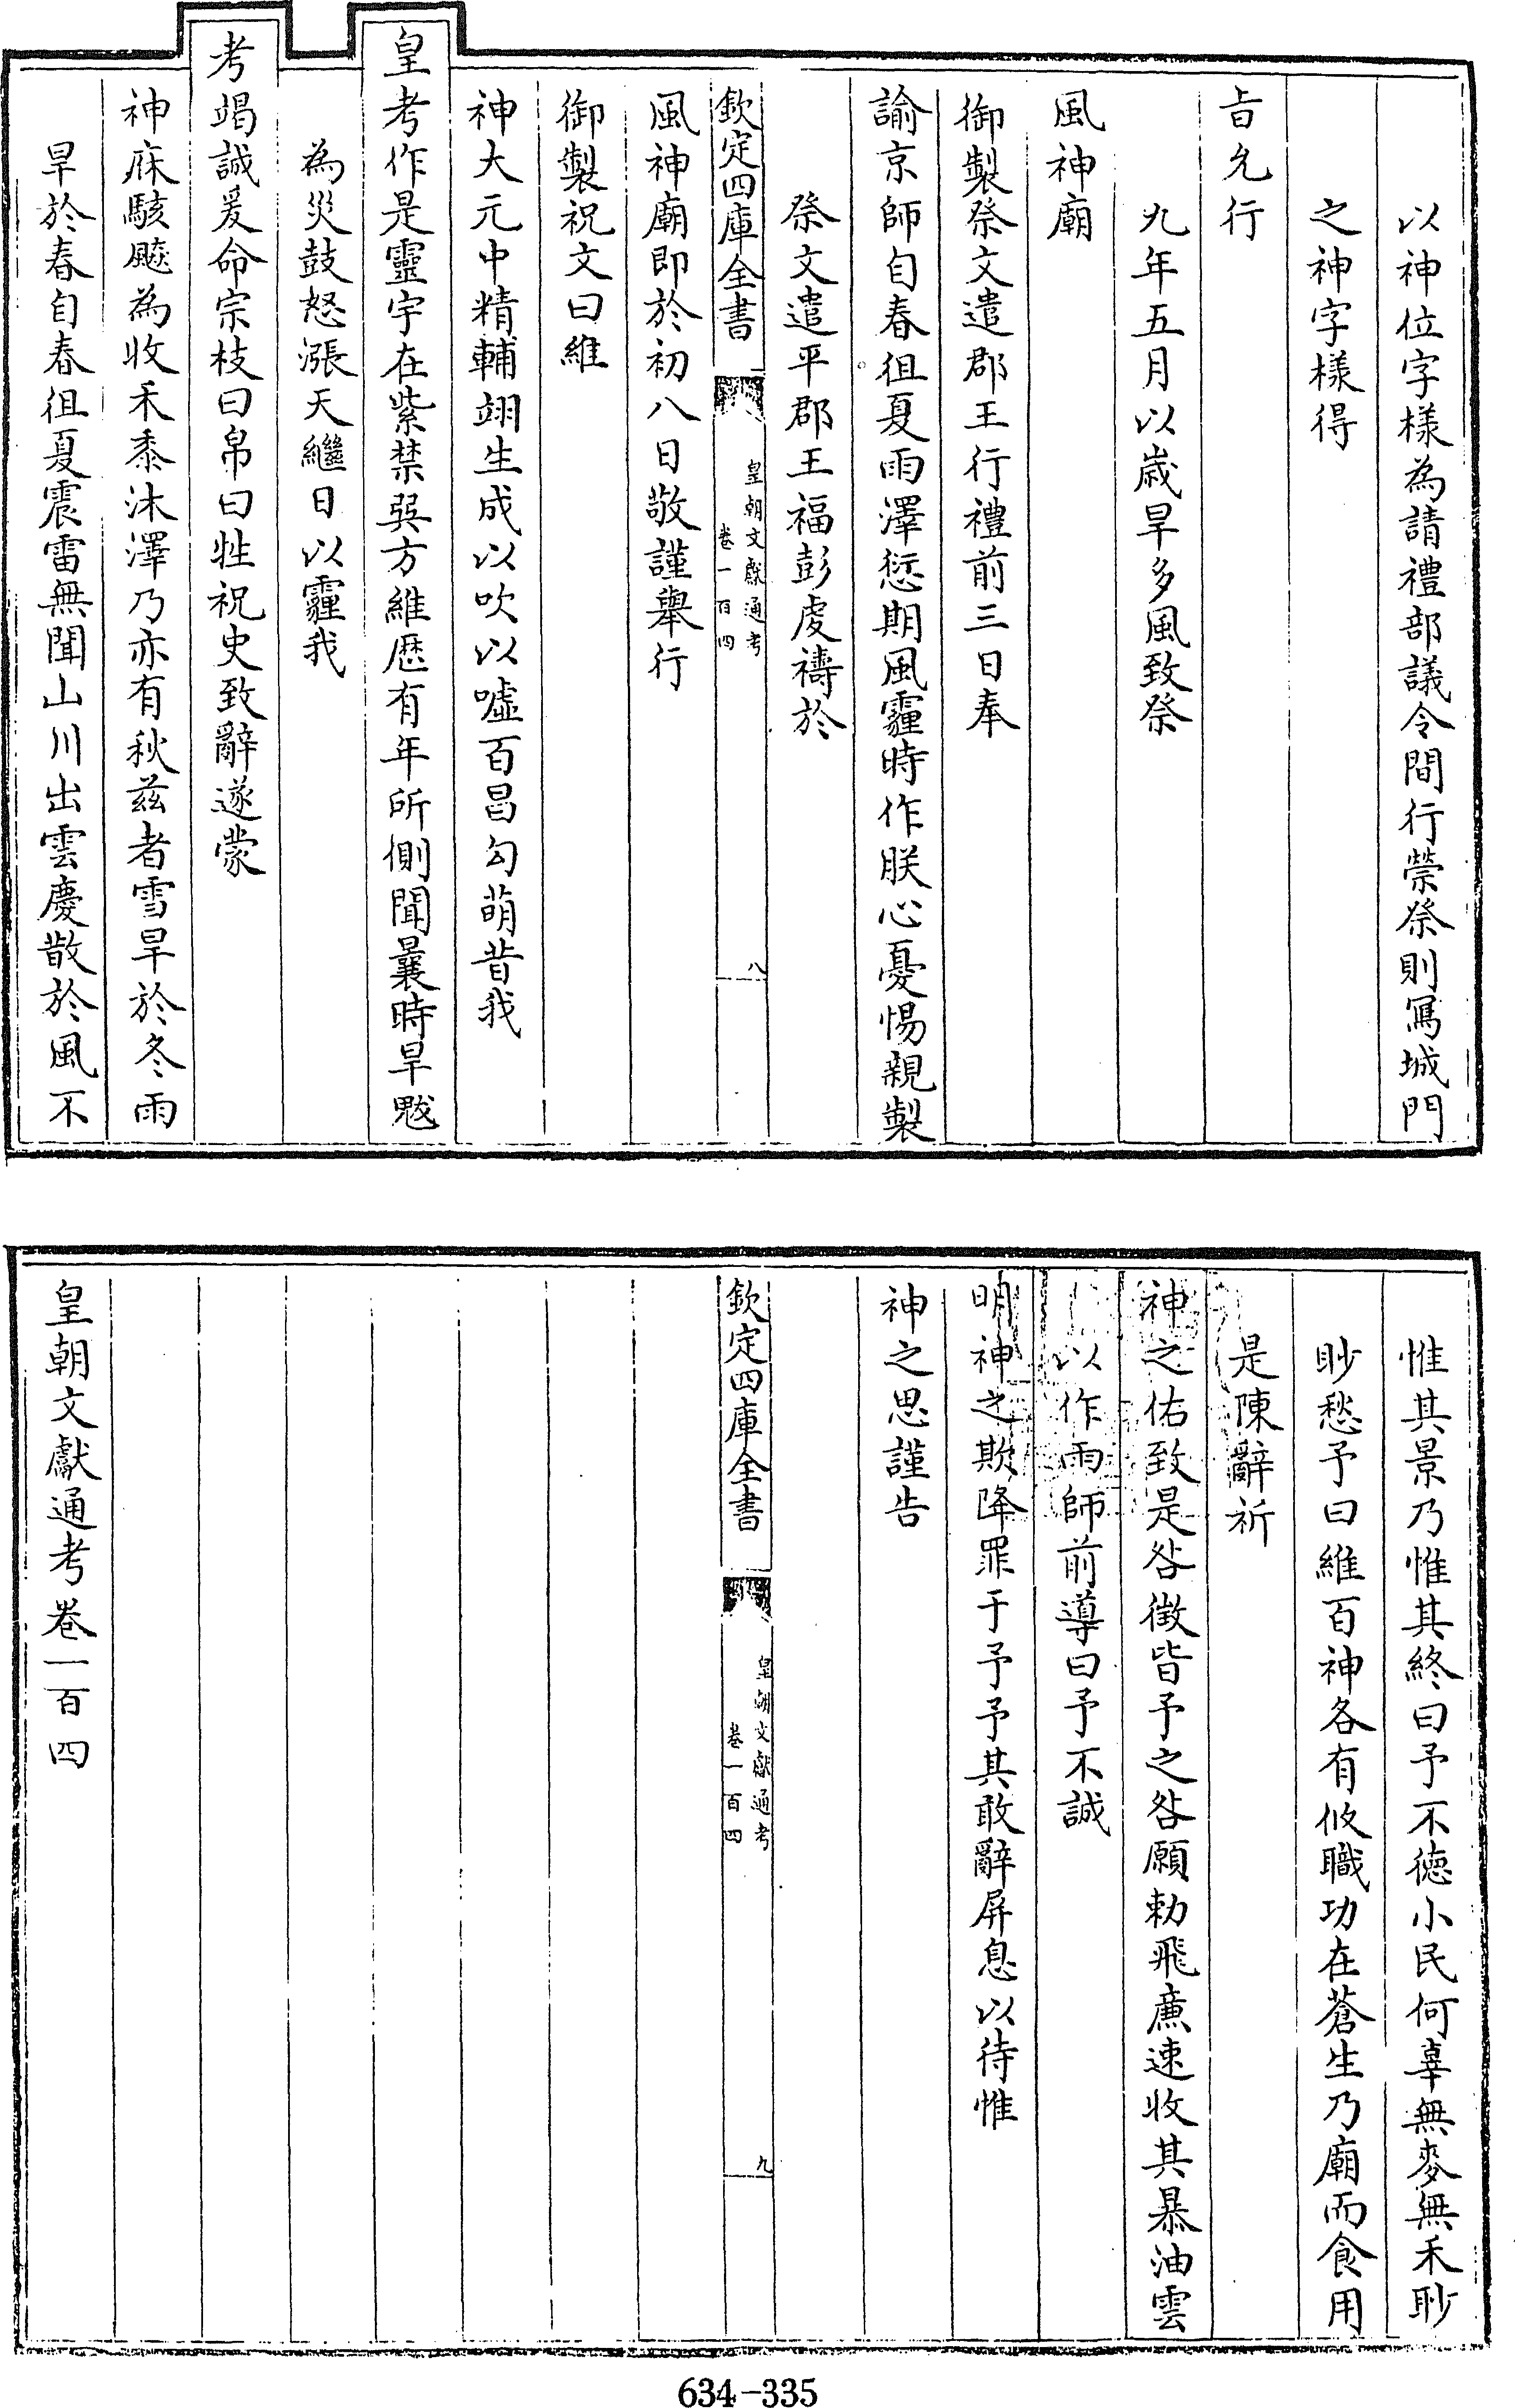 以神位字樣為請禮部議令間行禜祭則寫城門
之神字樣得
㫖允行
九年五月以歳旱多風致祭
風神廟
御製祭文遣郡王行禮前三日奉
諭京師自春徂夏雨澤愆期風霾時作朕心憂惕親製
祭文遣平郡王福彭䖍禱於
欽定四庫全書
皇朝文獻通考
卷一百四
八
風神廟即於初八日敬謹舉行
御製祝文曰維
神大元中精輔翊生成以吹以噓百昌勾萌昔我
皇考作是靈宇在紫禁巽方維歴有年所側聞曩時旱魃
為災鼓怒漲天繼日以霾我
考竭誠爰命宗枝曰帛曰牲祝史致辭遂蒙
神庥駭飈為收禾黍沐澤乃亦有秋兹者雪旱於冬雨
旱於春自春徂夏震雷無聞山川出雲慶散於風不
惟其景乃惟其終曰予不徳小民何辜無麥無禾眇
眇愁予曰維百神各有攸職功在蒼生乃廟而食用
是陳辭祈
神之佑致是咎徴皆予之咎願勅飛廉速收其暴油雲
以作雨師前導曰予不誠
明神之欺降罪于予予其敢辭屏息以待惟
神之思謹告
欽定四庫全書
皇朝文獻通考
卷一百四
九
皇朝文獻通考卷一百四
634-335